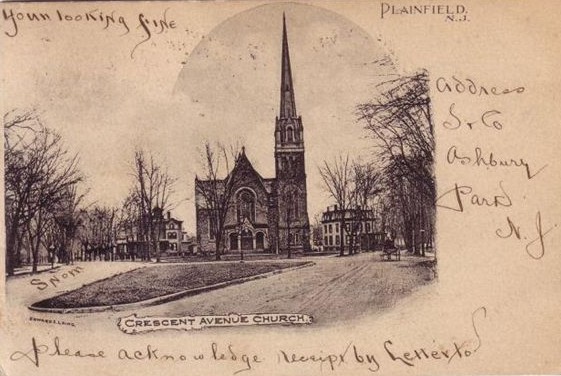 Your looking fine
PLAINFIELD.
N.J.
Address
S. & Co
Ashbury
Park
N.J.
Snom
CRESCENT AVENUE CHURCH.
Please acknowledge receipt by Letter to